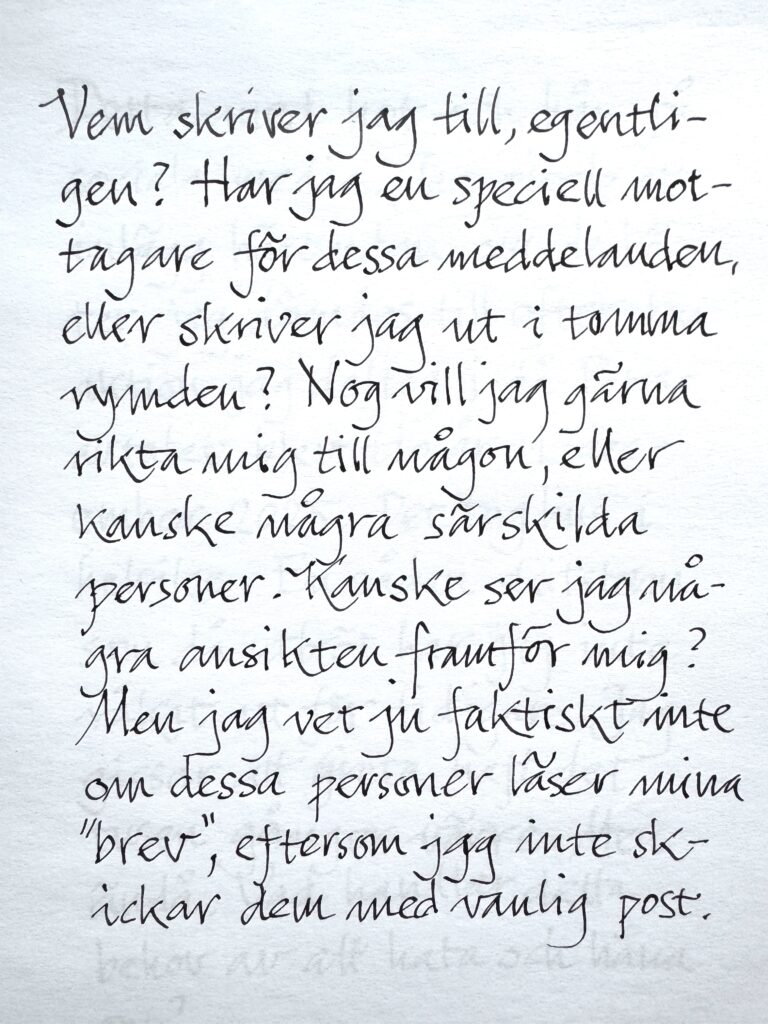 Vem skriver jag till, egentli-
gen? Har jag en speciell mot-
tagare för dessa meddelanden,
eller skriver jag ut i tomma
rymden? Nog vill jag gärna
rikta mig till någon, eller
kanske några särskilda
personer. Kanske ser jag nå-
gra ansikten framför mig?
Men jag vet ju faktiskt inte
om dessa personer läser mina
"brev", eftersom jag inte sk-
ickar dem med vanlig post.